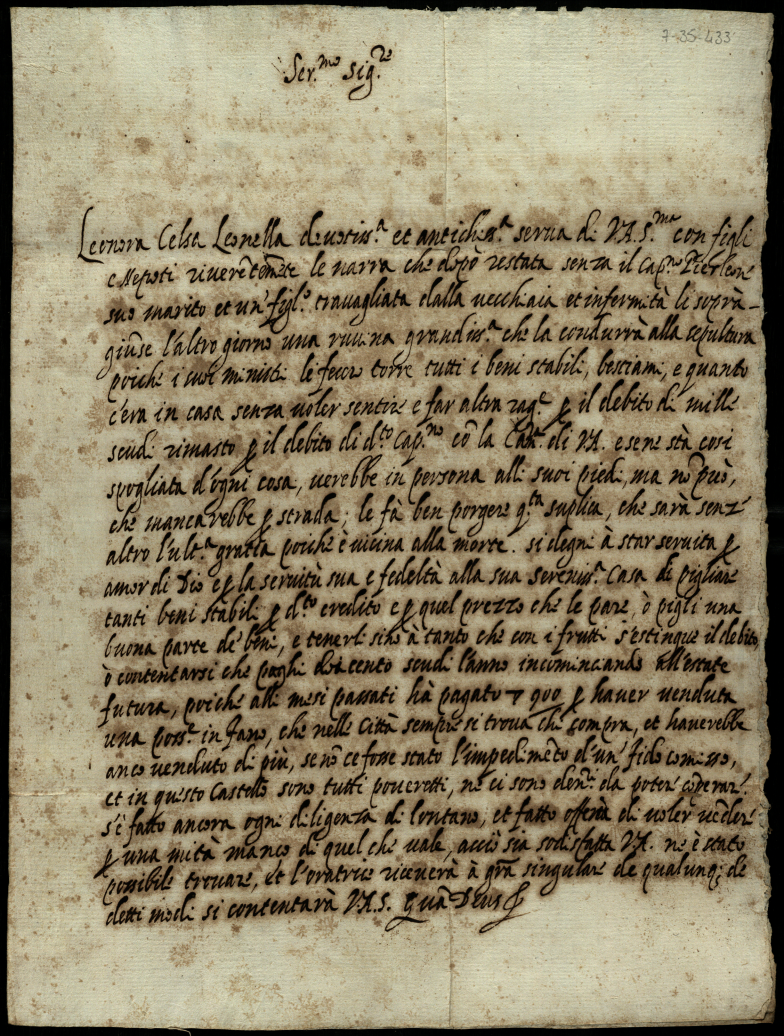 7-35-433
Ser.mo Sig.re
Leonora Celsa Leonella deuotiss.a et antichiss.a serua di V.A.S.ma con figli
e Nepoti riuerẽtemẽte le narra che dopò restata senza il Cap.no Pierleone
suo marito et un' figl.o trauagliata dalla vecchiaia et infermità li soprà-
giũse l'altro giorno una ruuina grandiss.a che la condurrà alla sepultura
poiche i suoi ministri le fecero torre tutti i beni stabili, bestiami, e quanto
c'era in casa senza uoler sentire e far altra rag.e ꝑ il debito di mille
scudi rimasto ꝑ il debito di d.to Cap.no cõ la Cam.a di V.A. e se ne stà cosi
spogliata d'ogni cosa, uerebbe in persona alli suoi piedi, ma nõ può,
che mancarebbe ꝑ strada; le fà ben porgere q.ta suplica, che sarà senz'
altro l'ult.a gratia poiche è uicina alla morte. si degni à star seruita ꝑ
amor di Dio e ꝑ la seruitù sua e fedeltà alla sua Sereniss.a Casa di pigliare
tanti beni stabili ꝑ d.to credito e ꝑ quel prezzo che le pare, ò pigli una
buona parte de beni, e tenerli sino à tanto che con i frutti s'estingue il debito
ò contentarsi che paghi cento scudi l'anno incominciando all'estate
futura, poiche alli mesi passati hà pagato ꝑ hauer venduta
una poss.e in Fano, che nelle Città sempre si troua chi compra, et hauerebbe
anco uenduto di più, se nõ ce fosse stato l'impedimẽto d'un' fidecomisso,
et in questo Castello sono tutti poueretti, ne ci sono den.ri da poter cõperare.
s'è fatto ancora ogni diligenza di lontano, et fatto offerta di uoler uẽdere
ꝑ una mità manco di quel che uale, acciò sia sodisfatta V.A. ne è stato
possibile trouare, et l'oratrice riceuerà à gr̃a singulare de qualunq; de
detti modi si contentarà V.A.S. Quã Deus